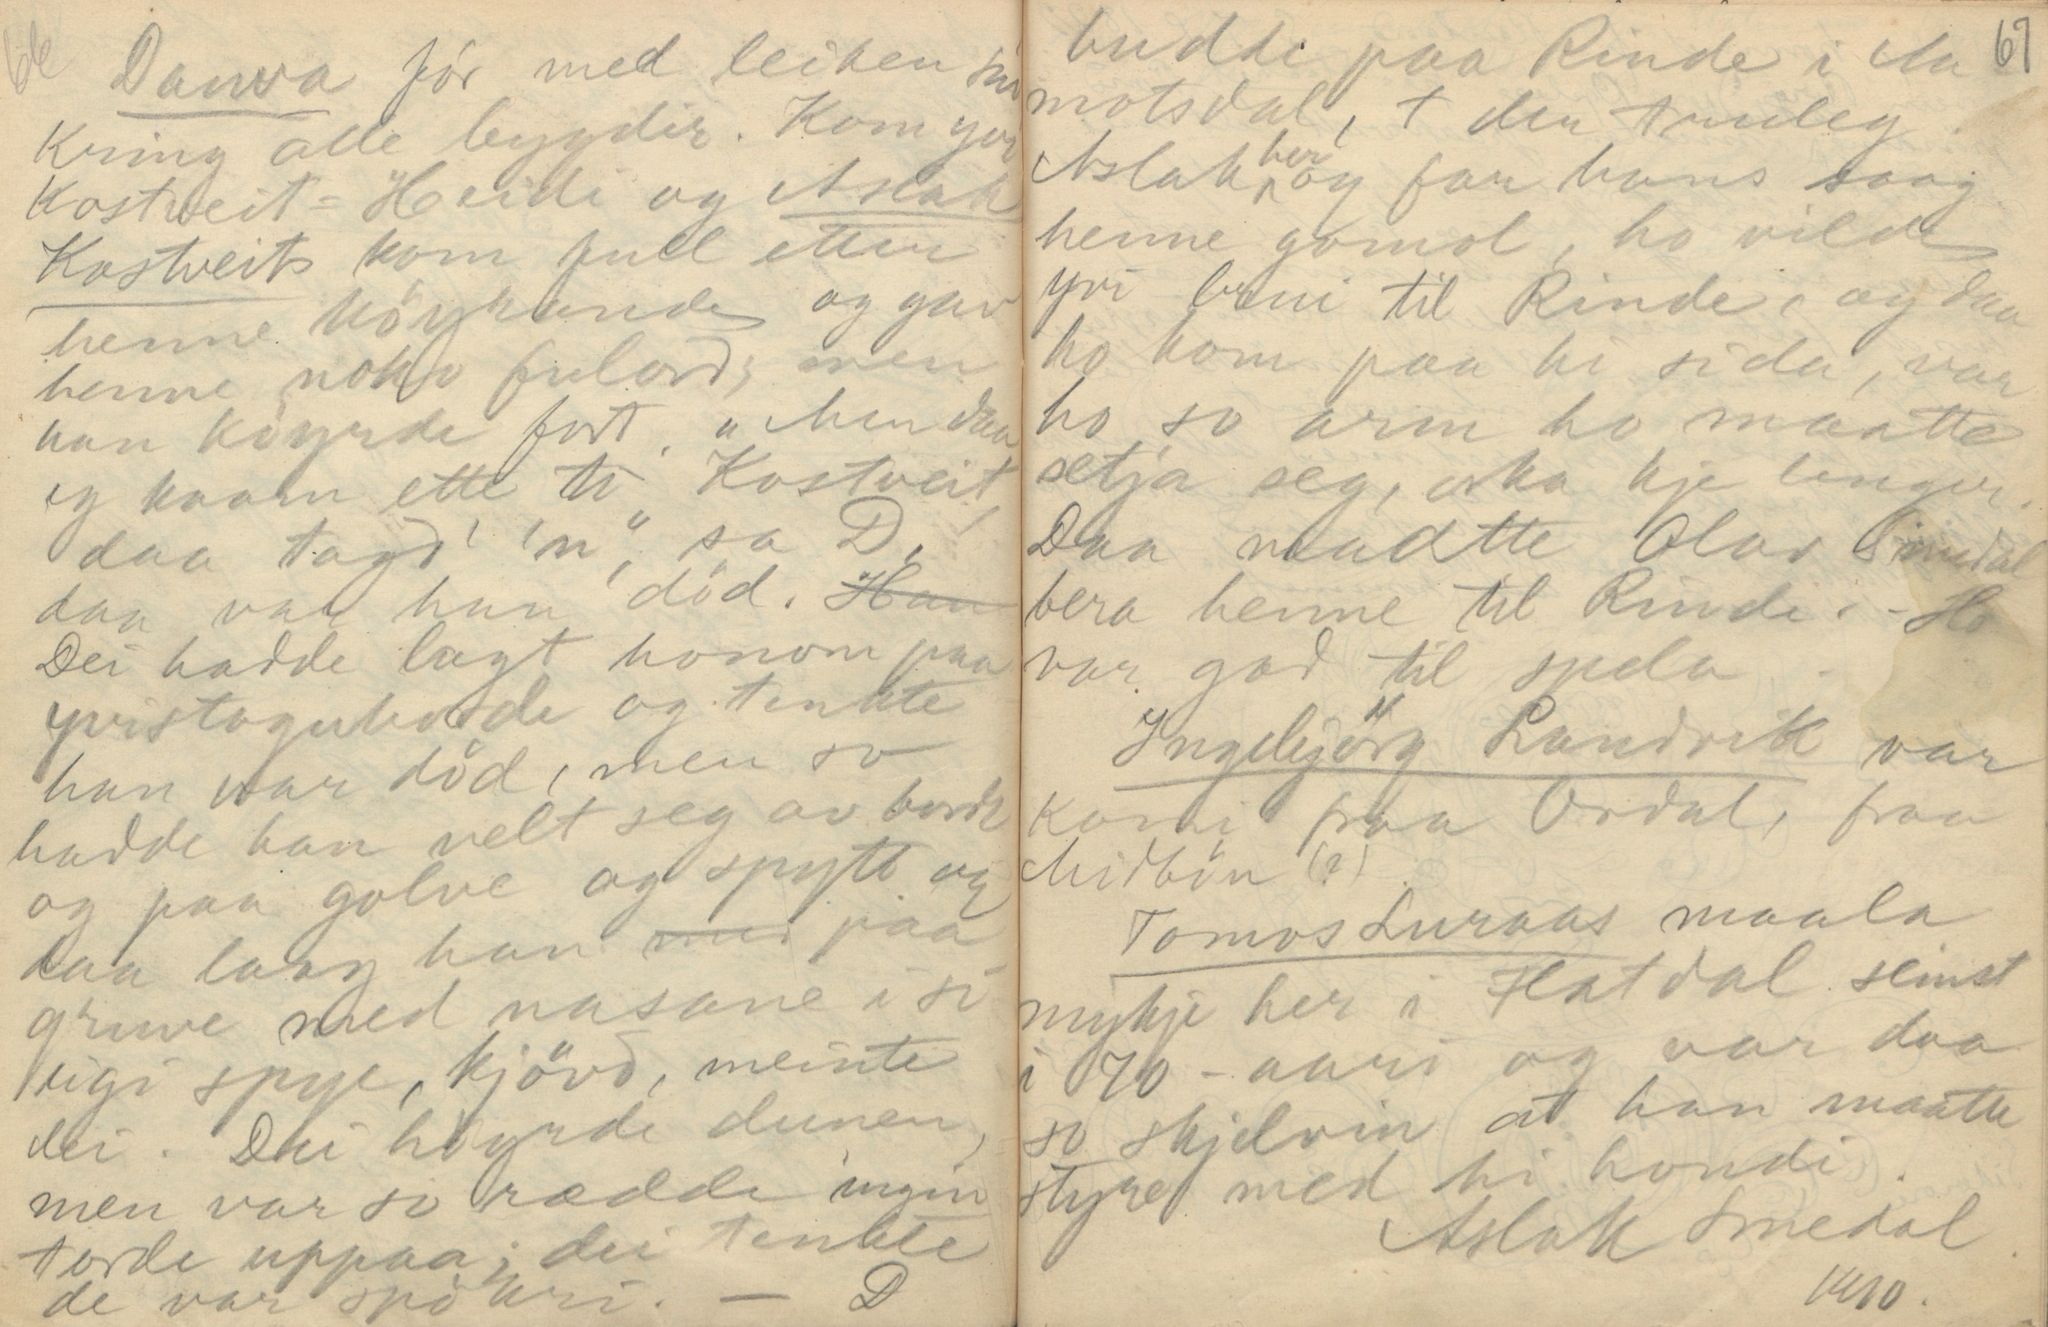 66
Danva fór med leiken sin
kring alle bygdir. Kom yvr
Kostveit-Heidi og Aslak
Kostveit kom full etter
henne köyrande og gav
henne noko fulord; men
han köyrde fort. "Men daa
eg kaam ette ti Kostveit,
daa tagd' 'n", sa D.,
daa var han död. Han
Dei hadde lagt honom paa
yvistoguborde og tenkte
han var död, men so
hadde han velt seg av bordе
og paa golve og spytt og
daa laag han med paa
gruve med nasane i si
eigi spye, kjövd, meinte
dei. Dei höyrde dunen,
men var so rædde ingin
torde uppaa; dei tenkte
de var spökri. — D
67
budde paa Rinde i Aa
motsdal, † der truleg.
Aslak her og far hans saag
henne gomol, ho vilde
yvi brui til Rinde, og daa
ho kom paa hi sida, var
ho so arm ho maatte
setja seg, orka kje lenger.
Daa maatte Olav Smedal
bera henne til Rinde. - Ho
var god til spela -
Ingebjörg Sandvik var
komi fraa Ordal, fraa
Midbön (?)
Tomos Luraas maala
mykje her i Flatdal seinst
i 70-aari og var daa
so skjelvin at han maatte
styre med hi hondi.
Aslak Smedal
1910.